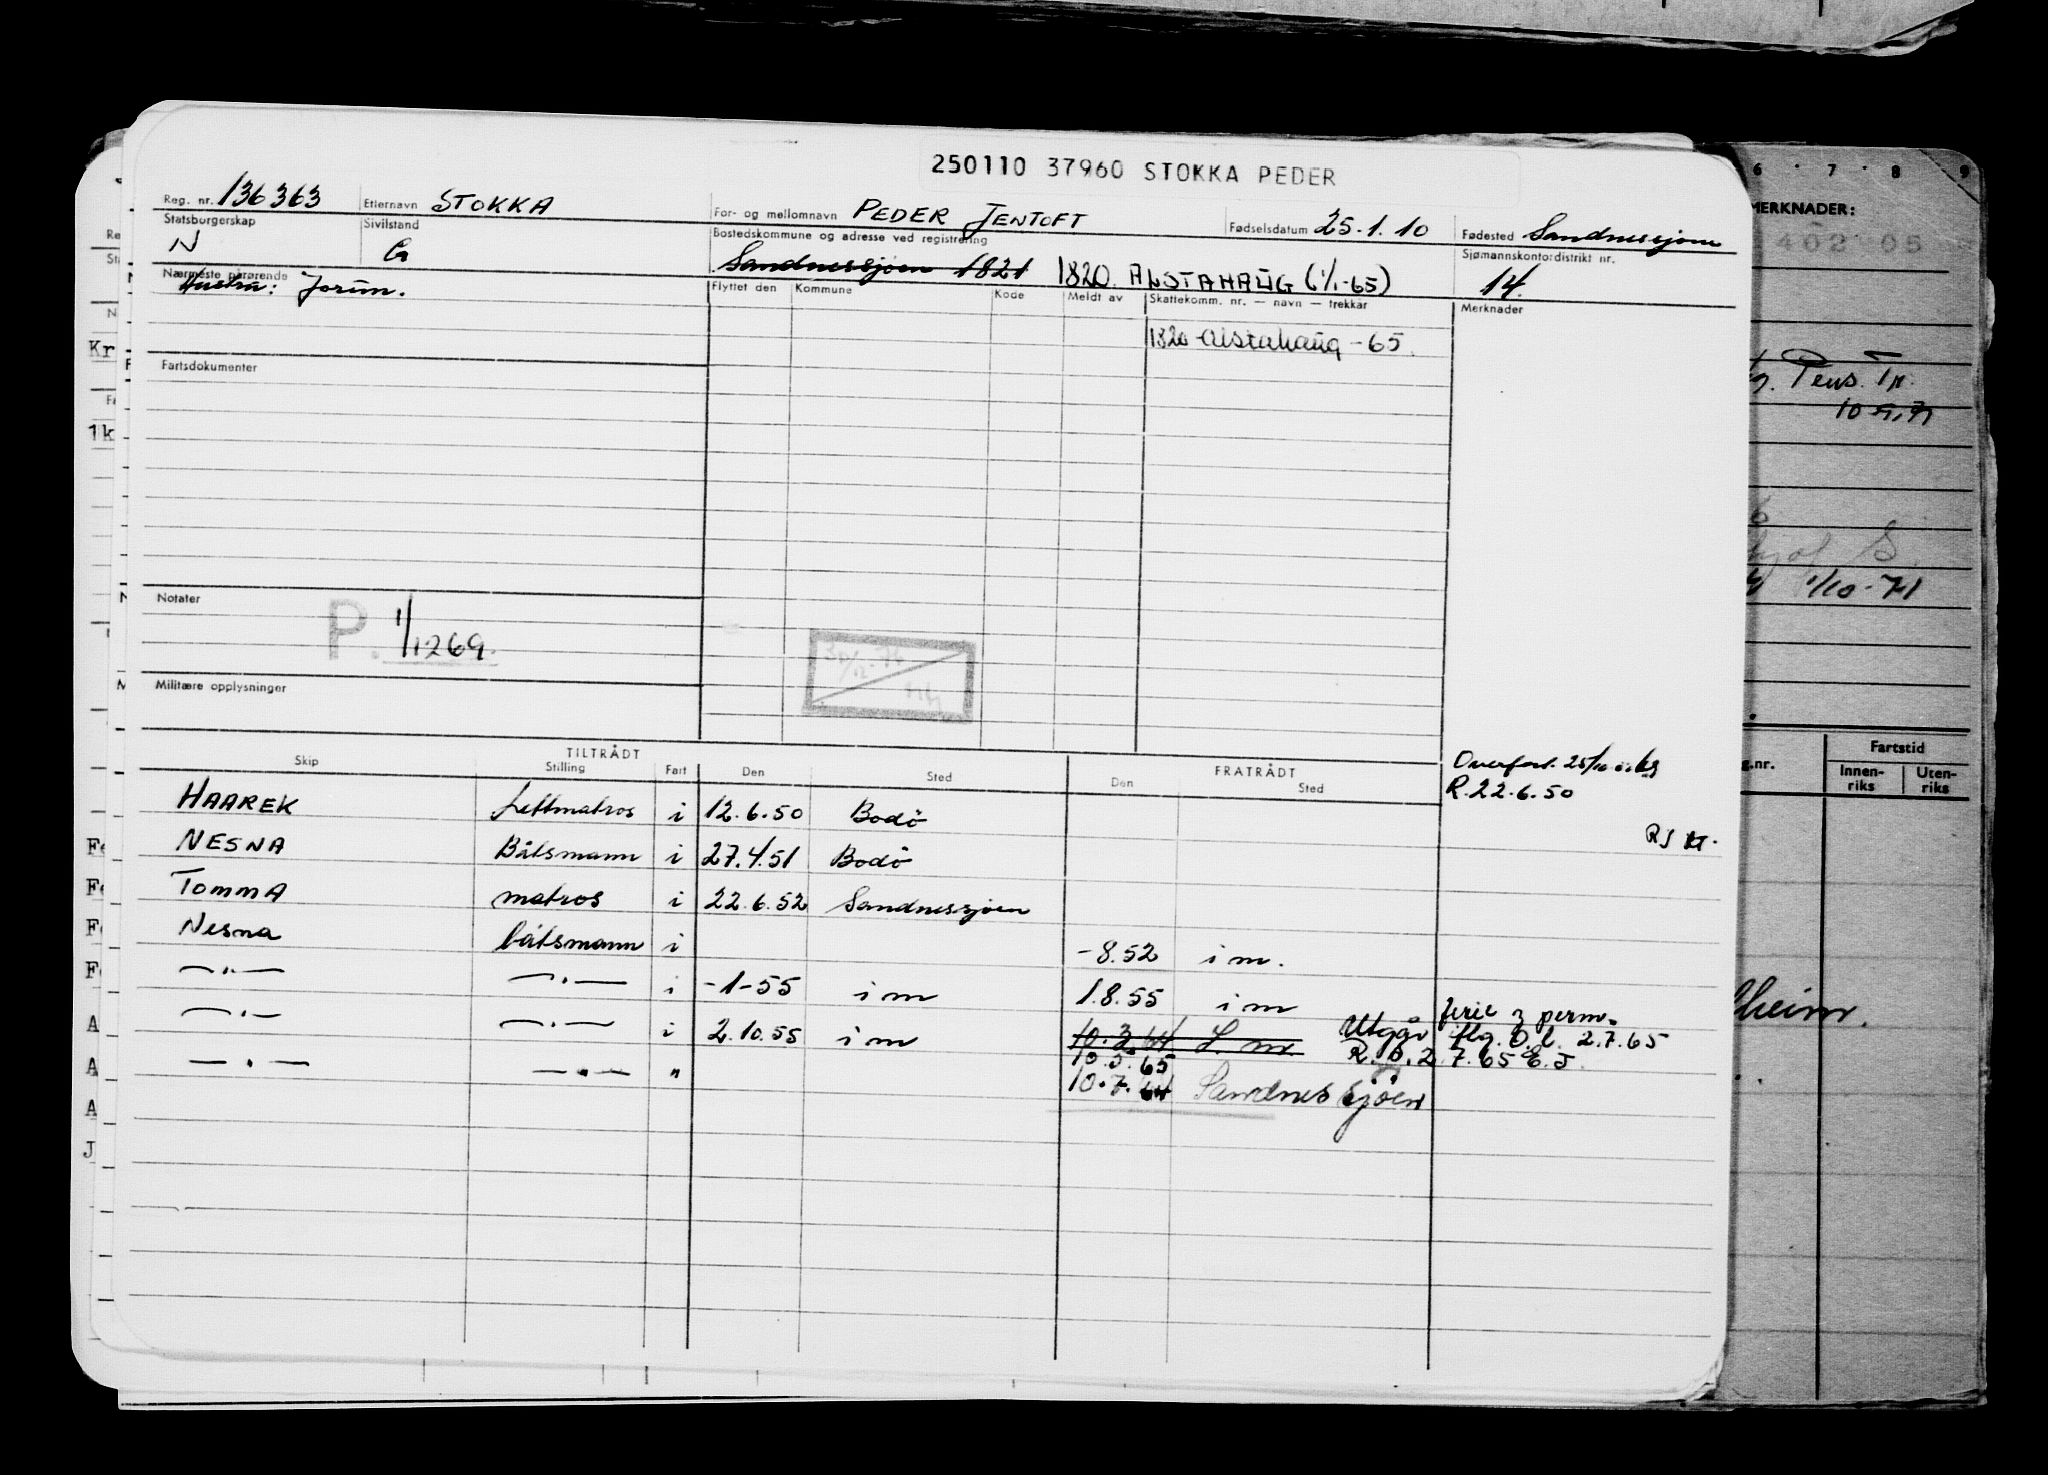 250110 37960 STOKKA PEDER
Reg. nr. 136363 Etternavn STOKKA For- og mellomnavn PEDER JENTOFT Fødselsdatum 25.1.10 Fødested Sandnessjøen
Statsborgerskap N Sivilstand G Bostedskommune og adresse ved registrering Sandnessjøen 1821 1820 ALSTAHAUG (1/1-65) Sjømannskontordistrikt nr. 14.
Nærmeste pårørende Hustru: Jorun.
Flyttet den Kommune Kode Meldt av Skattekomm. nr. — navn — trekkår Merknader
1820 Alstahaug -65.
Fartsdokumenter
Notater P. 1/1269.
Militære opplysninger
TILTRÅDT FRATRÅDT
Skip Stilling Fart Den Sted Den Sted
R.22.6.50
HAAREK Lettmatros i 12.6.50 Bodö
NESNA Båtsmann i 27.4.51 Bodö
TOMMA matros i 22.6.52 Sandnessjøen
Nesna båtsmann i -8.52 i m.
—"— —"— i -1-55 i m 1.8.55 i m
ferie z perm.
—"— —"— i 2.10.55 i m 10.3.64 L. m Utgår flg. O.l. 2.7.65
10.5.65 R.O. 2.7.65 E.J.
—"— —"— " 10.7.64 Sandnessjöen
6 7 8 9
MERKNADER:
402 05
Pens. Tr.
1/10-71
Fartstid
g.nr. Innen-riks Uten-riks
lheim.
Kr
1k
Fe
Fe
A
A
A
J